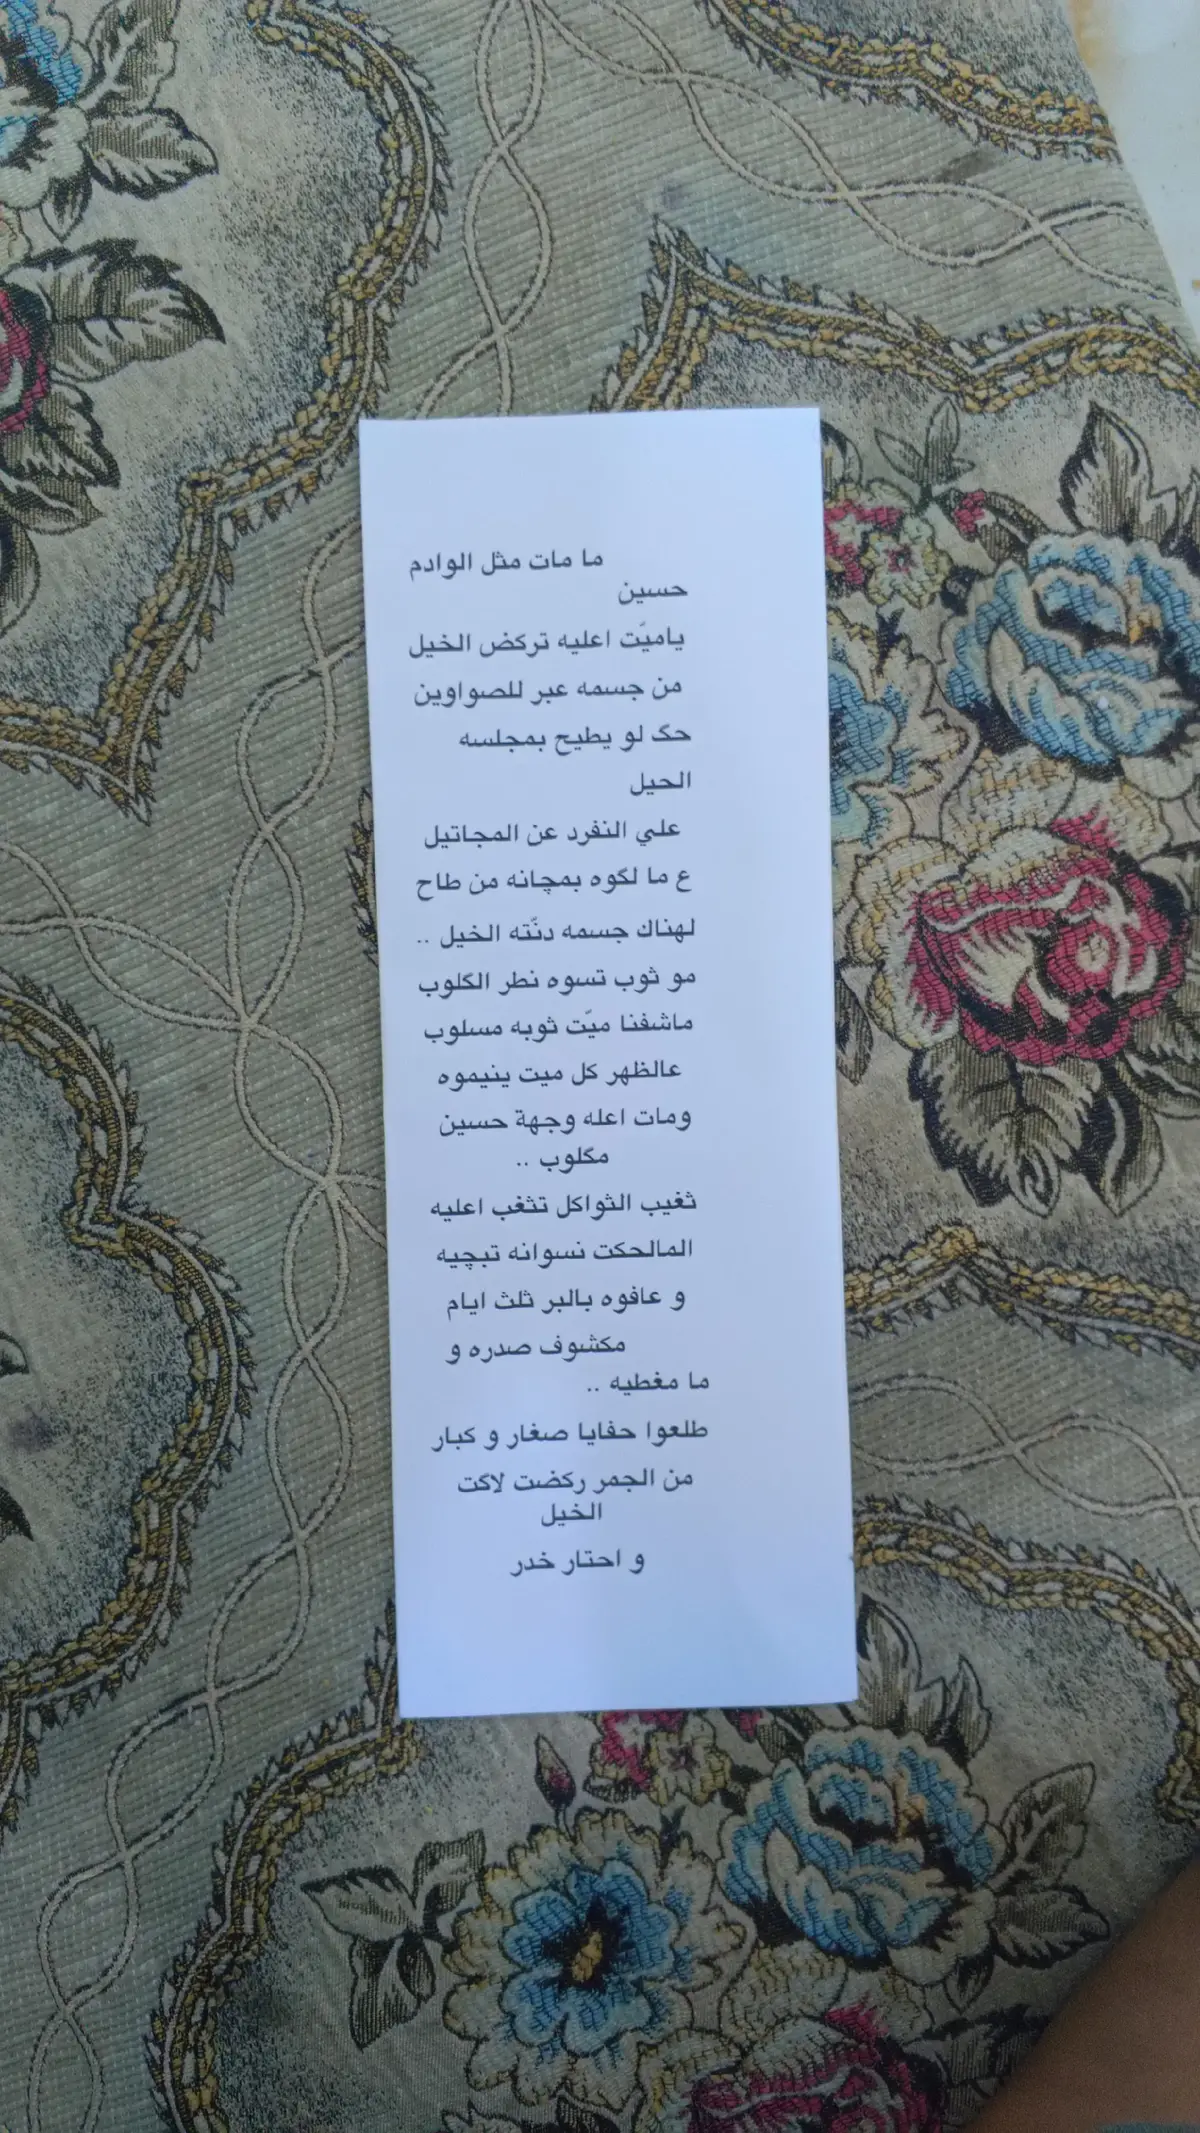 ما مات مثل الوادم
حسين
ياميّت اعليه تركض الخيل
من جسمه عبر للصواوين
حگ لو يطيح بمجلسه
الحيل
علي النفرد عن المجاتيل
ع ما لگوه بمچانه من طاح
لهناك جسمه دنّته الخيل ..
مو ثوب تسوه نطر الگلوب
ماشفنا ميّت ثوبه مسلوب
عالظهر كل ميت ينيموه
ومات اعله وجهة حسين
مگلوب ..
ثغيب الثواكل تثغب اعليه
المالحكت نسوانه تبچيه
و عافوه بالبر ثلث ايام
مكشوف صدره و
ما مغطيه ..
طلعوا حفايا صغار و كبار
من الجمر ركضت لاگت
الخيل
و احتار خدر